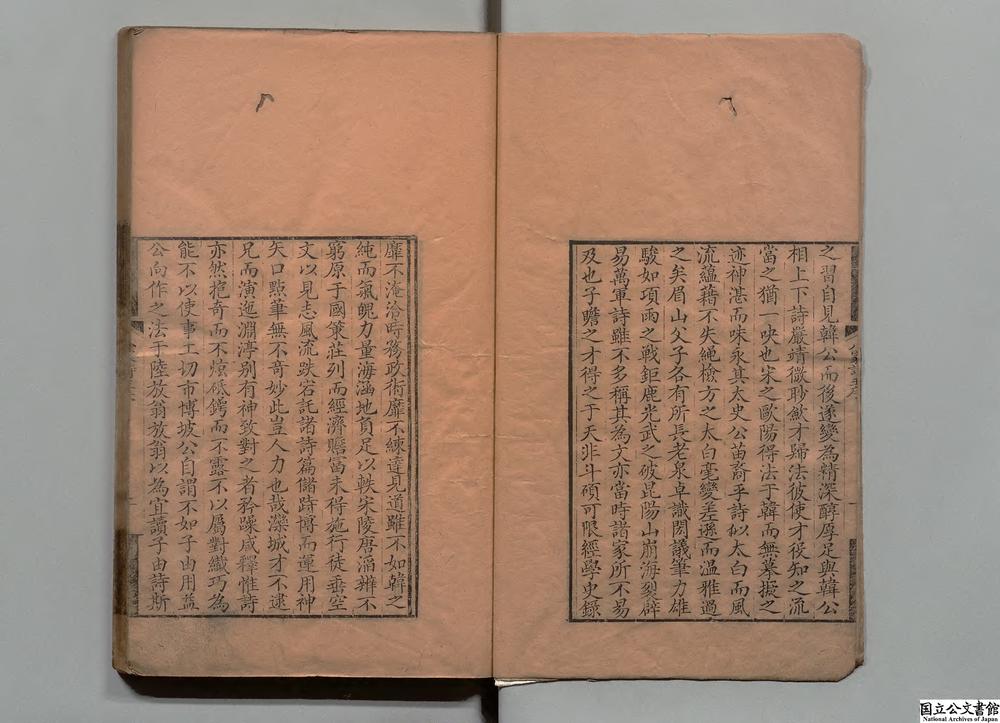 之習自見韓公而後遂變為精深醇厚足與韓公
相上下詩嚴靖微眇斂才歸法彼使才役知之流
當之猶一吷也宋之歐陽得法于韓而無摹擬之
迹神湛而味永其太史公苗裔乎詩似太白而風
流蘊藉不失繩檢方之太白毫變差遜而溫雅過
之矣眉山父子各有所長老泉卓識閎議筆力雄
駿如項羽之戰鉅鹿光武之破昆陽山崩海裂辟
易萬軍詩雖不多稱其為文亦當時諸家所不易
及也子瞻之才得之于天非斗碩可限經學史錄
靡不淹洽時務政術靡不練達見道雖不如韓之
純而氣魄力量海涵地負足以軼柴陵唐滔辨不
窮原于國策莊列而經濟贍富未得施行徒垂空
文以見志風流跌宕託諸詩篇儲跱博而運用神
矢口點筆無不奇妙此豈人力也哉灤城才不逮
兄而演迤淵渟別有神致對之者矜躁咸釋惟詩
亦然抱奇而不燝砥鍔而不露不以屬對纖巧為
能不以使事工切市博坡公自謂不如子由用益
公向作之法于陸放翁放翁以為宜讀子由詩斯
國立公文書館
National Archives of Japan